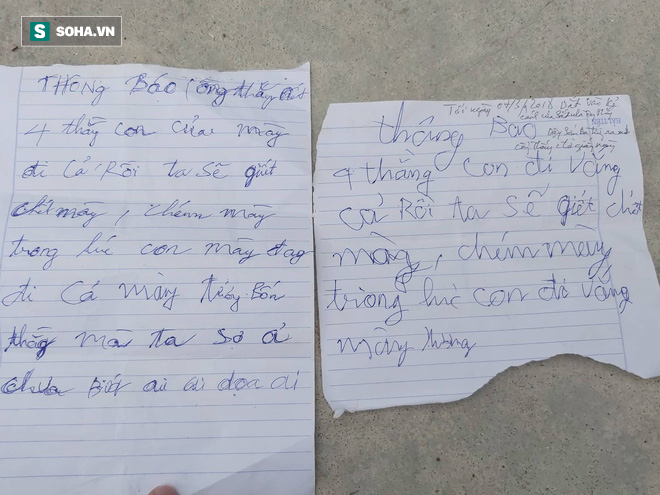 SOHA.VN
THONG BÁO
4 thằng con của mày
đi Cả Rồi ta sẽ giết
chết mày, chém mày
trong lúc con mày
đi Cả mày tưởng Bốn
thằng mà ta Sợ à
chưa Biết ai ai dọa ai
Tối ngày 04/5/2018
thông Bao
4 thằng con đi vắng
cả Rồi ta sẽ giết chết
mày, chém mày
trong lúc con đi vắng
mày tưởng